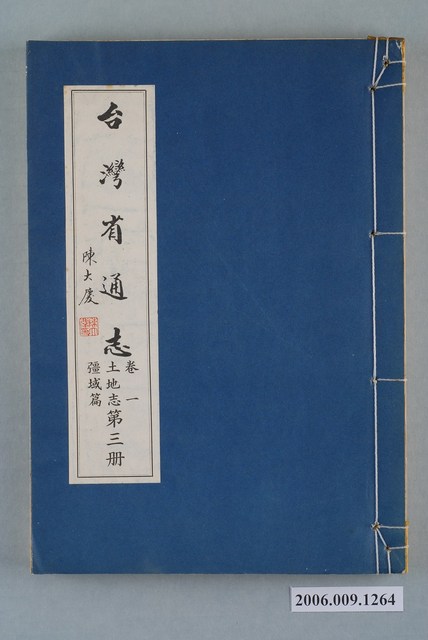 台灣省通志
陳大慶
卷一
土地志
疆域篇
第三册
2006.009.1264